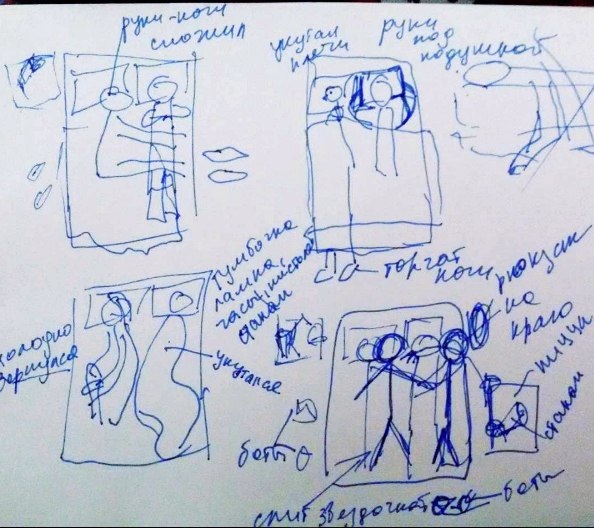 руки-ноги
сложил
укутал
плечи
руки
под
подушкой
торчат
ноги
холодно
вернулся
тумбочка
лампа,
часы, пистолет
стакан
укуталась
рюкзак
на
краю
пицца
стакан
боты
спит звездочкой
боты